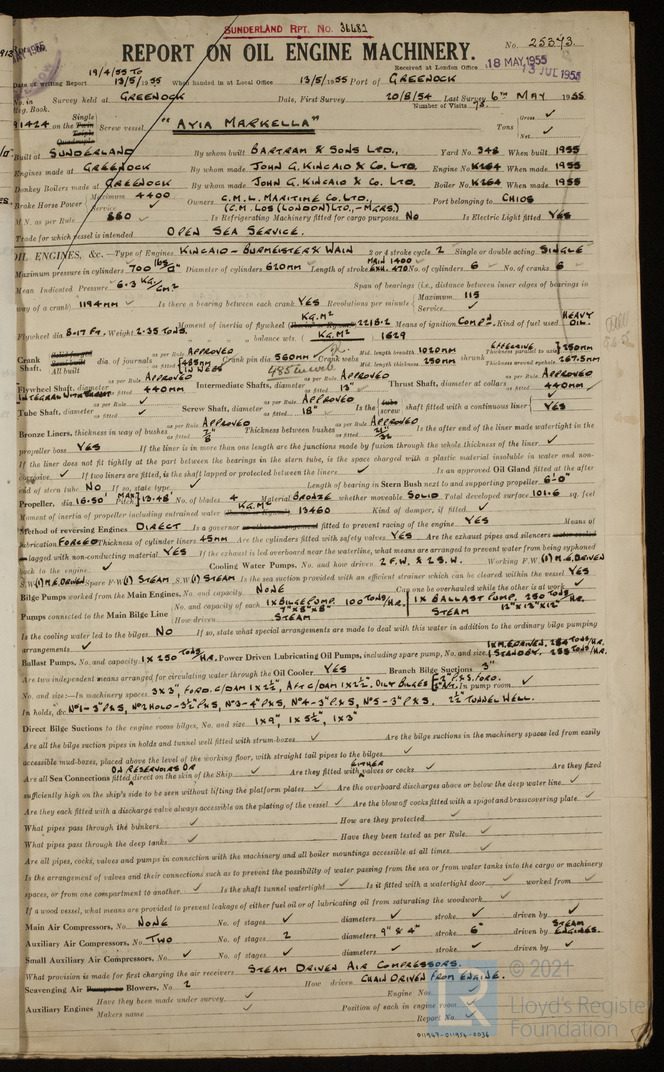 SUNDERLAND RPT. No. 36482
REPORT ON OIL ENGINE MACHINERY.
No. 25373.
Received at London Office 18 MAY 1955
13 JUL 1955
Date of writing Report 19/4/55 to 13/5/1955 When handed in at Local Office 13/5/1955 Port of GREENOCK
No. in Reg. Book. Survey held at GREENOCK Date, First Survey 20/8/54 Last Survey 6TH MAY 1955
Number of Visits 78.
91424 on the Single Twin Triple Quadruple Screw vessel "AYIA MARKELLA" Tons Gross Net
Built at SUNDERLAND By whom built BARTRAM & SONS LTD., Yard No. 348 When built 1955
Engines made at GREENOCK By whom made JOHN G. KINCAID & CO. LTD. Engine No. K264 When made 1955
Donkey Boilers made at GREENOCK By whom made JOHN G. KINCAID & CO. LTD. Boiler No. K264 When made 1955
Brake Horse Power Maximum 4400 Service Owners C.M.L. MARITIME CO. LTD., (C.M. LOS (LONDON) LTD, - MGRS.) Port belonging to CHIOS
M.N. as per Rule 880 Is Refrigerating Machinery fitted for cargo purposes NO Is Electric Light fitted YES
Trade for which vessel is intended OPEN SEA SERVICE.
OIL ENGINES, &c. — Type of Engines KINCAID - BURMEISTER & WAIN 2 or 4 stroke cycle 2 Single or double acting SINGLE
Maximum pressure in cylinders 700 lbs/□" Diameter of cylinders 620mm Length of stroke MAIN 1400 EXH. 470 No. of cylinders 6 No. of cranks 6
Mean Indicated Pressure 6.3 KG/CM² Span of bearings (i.e., distance between inner edges of bearings in
way of a crank) 1194mm Is there a bearing between each crank YES Revolutions per minute Maximum 115 Service
Flywheel dia 8.17 FT. Weight 2.35 TONS. Moment of inertia of flywheel KG.M² 2218.2 Means of ignition COMPN Kind of fuel used HEAVY OIL.
" balance wts. KG.M² 1629
Crank Shaft. Solid forged Semi built All built dia. of journals as per Rule APPROVED as fitted 485mm IN WEBS Crank pin dia. 560mm Crank webs Mid. length breadth 1020mm Mid. length thickness 250mm shrunk Thickness parallel to axis EFFECTIVE 250mm Thickness around eye-hole 267.5mm
485 in web
Flywheel Shaft, diameter INTEGRAL WITH THRUST as per Rule APPROVED as fitted 440mm Intermediate Shafts, diameter as per Rule APPROVED as fitted 13" Thrust Shaft, diameter at collars as per Rule APPROVED as fitted 440mm
Tube Shaft, diameter as per Rule as fitted Screw Shaft, diameter as per Rule APPROVED as fitted 18" Is the tube screw shaft fitted with a continuous liner YES
Bronze Liners, thickness in way of bushes as per Rule APPROVED as fitted 7/8" Thickness between bushes as per Rule APPROVED as fitted 21/32" Is the after end of the liner made watertight in the
propeller boss YES If the liner is in more than one length are the junctions made by fusion through the whole thickness of the liner
If the liner does not fit tightly at the part between the bearings in the stern tube, is the space charged with a plastic material insoluble in water and non-
corrosive If two liners are fitted, is the shaft lapped or protected between the liners Is an approved Oil Gland fitted at the after
end of stern tube NO If so, state type Length of bearing in Stern Bush next to and supporting propeller 6'-0"
Propeller, dia. 16.50' Pitch MAX 13.48' No. of blades 4 Material BRONZE whether moveable SOLID Total developed surface 101.6 sq. feet
Moment of inertia of propeller including entrained water KG.M² 13460 Kind of damper, if fitted
Method of reversing Engines DIRECT Is a governor or other arrangement fitted to prevent racing of the engine YES Means of
lubrication FORCED Thickness of cylinder liners 45mm Are the cylinders fitted with safety valves YES Are the exhaust pipes and silencers water cooled
or lagged with non-conducting material YES If the exhaust is led overboard near the waterline, what means are arranged to prevent water from being syphoned
back to the engine Cooling Water Pumps, No. and how driven 2 F.W. & 2 S.W. Working F.W (1) M.E. DRIVEN
S.W (1) M.E. DRIVEN Spare F.W (1) STEAM, S.W (1) STEAM Is the sea suction provided with an efficient strainer which can be cleared within the vessel YES
Bilge Pumps worked from the Main Engines, No. and capacity NONE Can one be overhauled while the other is at work
Pumps connected to the Main Bilge Line No. and capacity of each 1 X BILGE PUMP 100 TONS/HR. 7" X 8" X 8" 1 X BALLAST PUMP 250 TONS/HR. 12" X 13" X 12"
How driven STEAM STEAM
Is the cooling water led to the bilges NO If so, state what special arrangements are made to deal with this water in addition to the ordinary bilge pumping
arrangements
Ballast Pumps, No. and capacity 1 X 250 TONS/HR. Power Driven Lubricating Oil Pumps, including spare pump, No. and size 1 X M.E. DRIVEN, 284 TONS/HR. 1 STANDBY. 285 TONS/HR.
Are two independent means arranged for circulating water through the Oil Cooler YES Branch Bilge Suctions 3"
No. and size:—In machinery spaces 3 X 3", FORD. C/DAM 1 X 2½", AFT C/DAM 1 X 2½". OILY BILGES 2" P.& S. FORD. 3" AFT. In pump room
In holds, &c. Nº1-3" P&S, Nº2 HOLD-3½" P&S, Nº3-4" P&S, Nº4-3" P&S, Nº5-3" P&S. 2½" TUNNEL WELL.
Direct Bilge Suctions to the engine room bilges, No. and size 1 X 9", 1 X 5½", 1 X 3"
Are all the bilge suction pipes in holds and tunnel well fitted with strum-boxes Are the bilge suctions in the machinery spaces led from easily
accessible mud-boxes, placed above the level of the working floor, with straight tail pipes to the bilges
Are all Sea Connections fitted direct on the skin of the Ship ON RESERVOIRS OR Are they fitted with EITHER valves or cocks Are they fixed
sufficiently high on the ship's side to be seen without lifting the platform plates Are the overboard discharges above or below the deep water line
Are they each fitted with a discharge valve always accessible on the plating of the vessel Are the blow off cocks fitted with a spigot and brass covering plate
What pipes pass through the bunkers How are they protected
What pipes pass through the deep tanks Have they been tested as per Rule
Are all pipes, cocks, valves and pumps in connection with the machinery and all boiler mountings accessible at all times
Is the arrangement of valves and their connections such as to prevent the possibility of water passing from the sea or from water tanks into the cargo or machinery
spaces, or from one compartment to another Is the shaft tunnel watertight Is it fitted with a watertight door worked from
If a wood vessel, what means are provided to prevent leakage of either fuel oil or of lubricating oil from saturating the woodwork
Main Air Compressors, No. NONE No. of stages diameters stroke driven by
Auxiliary Air Compressors, No. TWO No. of stages 2 diameters 9" & 4" stroke 6" driven by STEAM ENGINES.
Small Auxiliary Air Compressors, No. No. of stages diameters stroke driven by
What provision is made for first charging the air receivers STEAM DRIVEN AIR COMPRESSORS.
Scavenging Air Pumps or Blowers, No. 2 How driven CHAIN DRIVEN FROM ENGINE.
Auxiliary Engines Have they been made under survey Engine Nos.
Makers name Position of each in engine room
Report No.
© 2021
Lloyd's Register
Foundation
011947-011954-0036